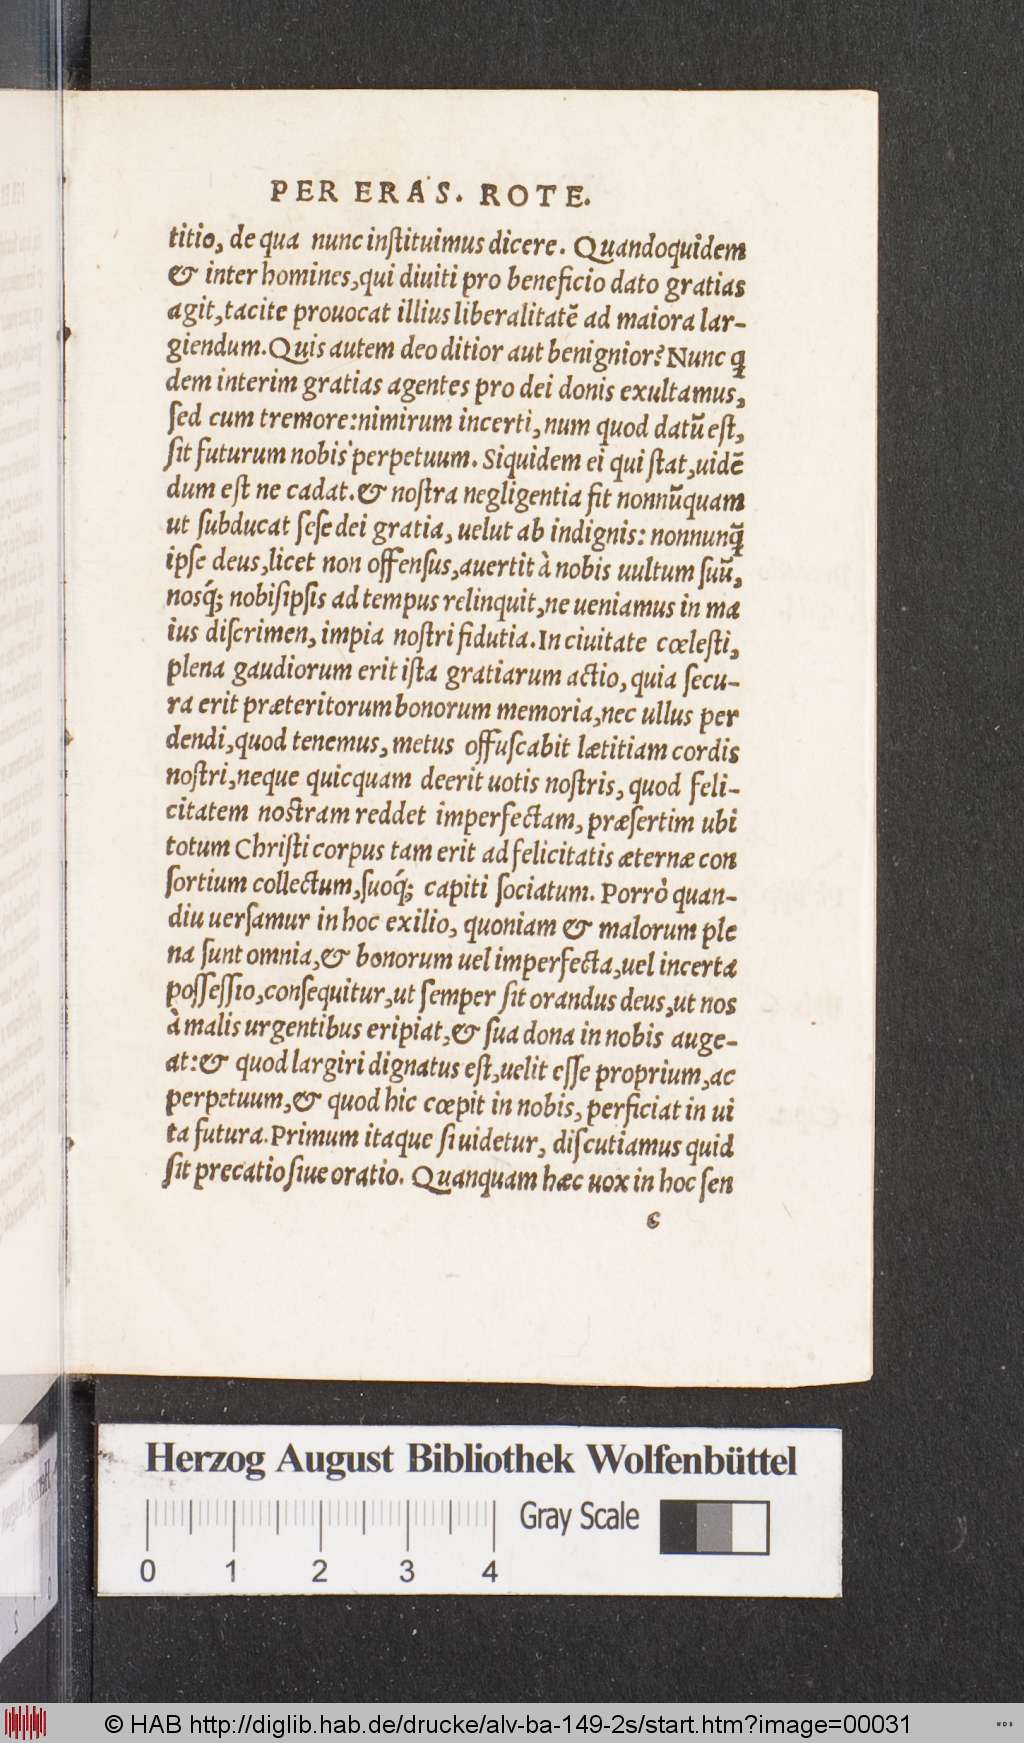 PER ERAS. ROTE.
titio, de qua nunc inſtituimus dicere. Quandoquidem
& inter homines,qui diuiti pro beneficio dato gratias
agit,tacite prouocat illius liberalitatẽ ad maiora lar-
giendum.Quis autem deo ditior aut benignior? Nunc ꝗ̃
dem interim gratias agentes pro dei donis exultamus,
ſed cum tremore:nimirum incerti,num quod datũ eſt,
ſit futurum nobis perpetuum. Siquidem ei qui ſtat,uidẽ
dum eſt ne cadat.& noſtra negligentia fit nonnũquam
ut ſubducat ſeſe dei gratia, uelut ab indignis: nonnunꝗ̃
ipſe deus,licet non offenſus,auertit à nobis uultum ſuũ,
nosq́; nobiſipſis ad tempus relinquit,ne ueniamus in ma
ius diſcrimen, impia noſtri fidutia.In ciuitate cœleſti,
plena gaudiorum erit iſta gratiarum actio,quia ſecu-
ra erit præteritorum bonorum memoria,nec ullus per
dendi,quod tenemus,metus offuſcabit lætitiam cordis
noſtri,neque quicquam deerit uotis noſtris, quod feli-
citatem noſtram reddet imperfectam, præſertim ubi
totum Chriſti corpus tam erit ad felicitatis æternæ con
ſortium collectum,ſuoq́; capiti ſociatum. Porrò quan-
diu uerſamur in hoc exilio, quoniam & malorum ple
na ſunt omnia,& bonorum uel imperfecta,uel incerta
poſſeſſio,conſequitur,ut ſemper ſit orandus deus,ut nos
à malis urgentibus eripiat,& ſua dona in nobis auge-
at:& quod largiri dignatus eſt,uelit eſſe proprium,ac
perpetuum,& quod hic cœpit in nobis, perficiat in ui
ta futura.Primum itaque ſi uidetur, diſcutiamus quid
ſit precatio ſiue oratio. Quanquam hæc uox in hoc ſen
c
Herzog August Bibliothek Wolfenbüttel
Gray Scale
0 1 2 3 4
© HAB http://diglib.hab.de/drucke/alv-ba-149-2s/start.htm?image=00031